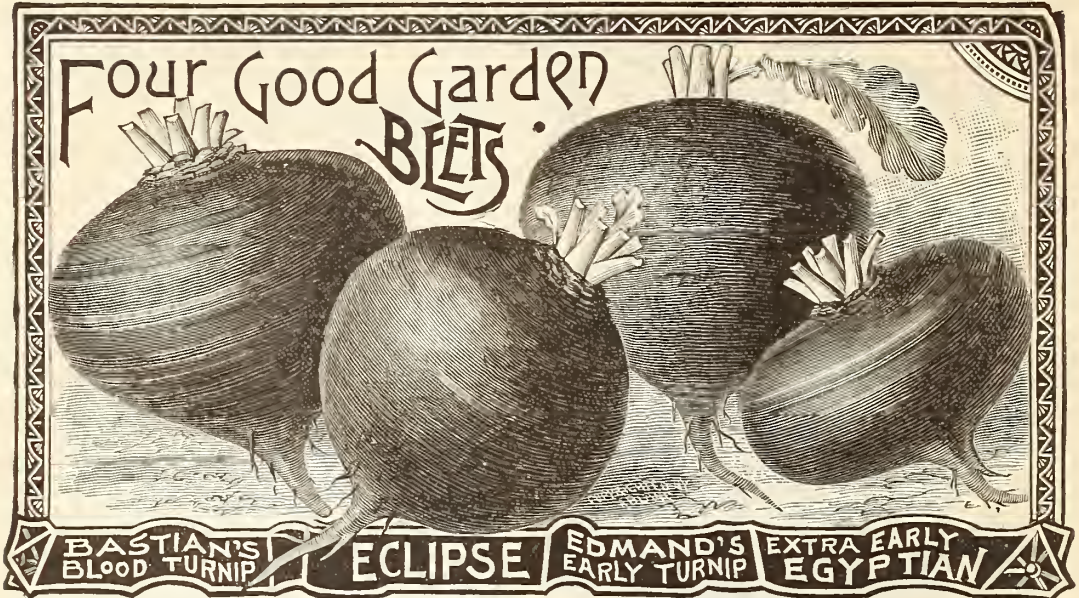 Four Good Garden
BEETS.
BASTIAN'S
BLOOD TURNIP
ECLIPSE
EDMAND'S
EARLY TURNIP
EXTRA EARLY
EGYPTIAN